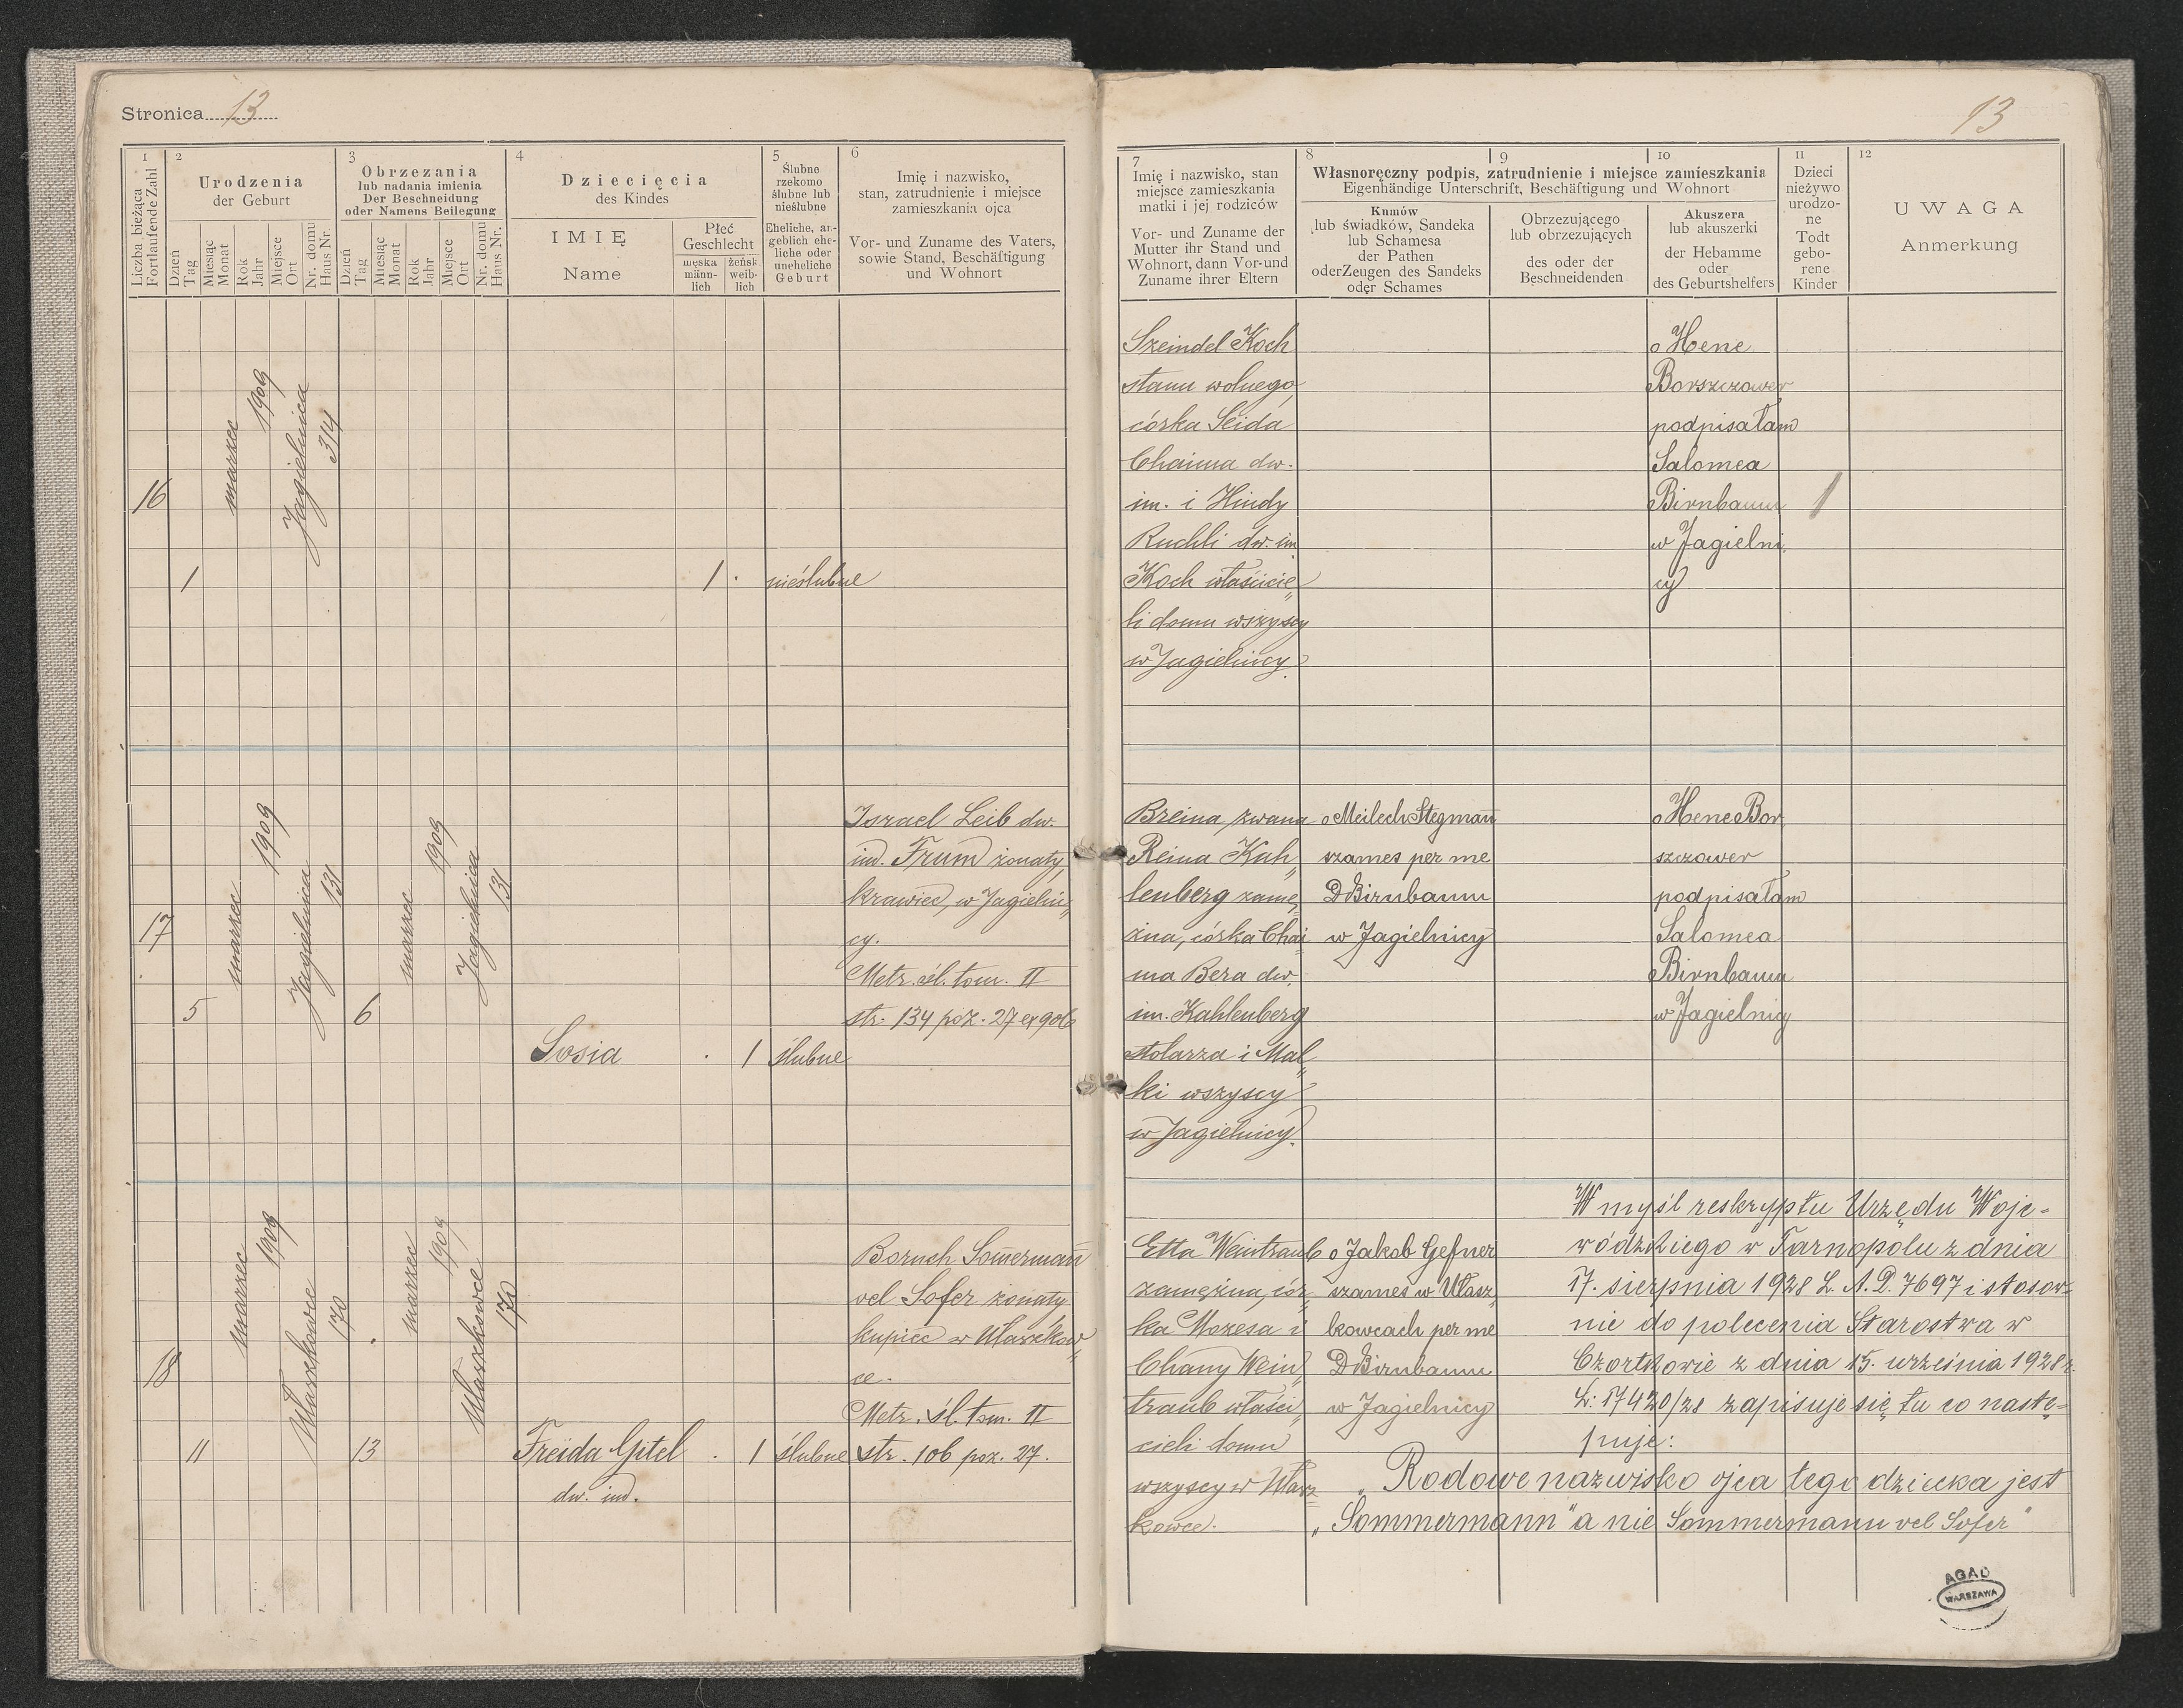 Stronica 13
13
1
Liczba bieżąca
Fortlaufende Zahl
2
Urodzenia
der Geburt
Dzień
Tag
Miesiąc
Monat
Rok
Jahr
Miejsce
Ort
Nr. domu
Haus Nr.
3
Obrzezania
lub nadania imienia
Der Beschneidung
oder Namens Beilegung
Dzień
Tag
Miesiąc
Monat
Rok
Jahr
Miejsce
Ort
Nr. domu
Haus Nr.
4
Dziecięcia
des Kindes
IMIĘ
Name
Płeć
Geschlecht
męska
männ-
lich
żeńsk.
weib-
lich
5
Ślubne
rzekomo
ślubne lub
nieślubne
Eheliche, an-
geblich ehe-
liche oder
uneheliche
Geburt
6
Imię i nazwisko,
stan, zatrudnienie i miejsce
zamieszkania ojca
Vor- und Zuname des Vaters,
sowie Stand, Beschäftigung
und Wohnort
7
Imię i nazwisko, stan
miejsce zamieszkania
matki i jej rodziców
Vor- und Zuname der
Mutter ihr Stand und
Wohnort, dann Vor-und
Zuname ihrer Eltern
8
9
10
Własnoręczny podpis, zatrudnienie i miejsce zamieszkania
Eigenhändige Unterschrift, Beschäftigung und Wohnort
Kumów
lub świadków, Sandeka
lub Schamesa
der Pathen
oder Zeugen des Sandeks
oder Schames
Obrzezującego
lub obrzezujących
des oder der
Beschneidenden
Akuszera
lub akuszerki
der Hebamme
oder
des Geburtshelfers
11
Dzieci
nieżywo
urodzo-
ne
Todt
gebo-
rene
Kinder
12
UWAGA
Anmerkung
16
1
marzec
1909
Jagielnica
314
1 ·
nieślubne
Szeindel Koch
stanu wolnego,
córka Seida
Chaima dw.
im. i Hindy
Ruchli dw. im
Koch właścicie„
li domu wszyscy
w Jagielnicy.
o Hene
Borszczower
podpisałam
Salomea
Birnbaum
w Jagielni
cy
1
17
5
marzec
1909
Jagielnica
131
6
marzec
1909
Jagielnica
131
Sosia
· 1
ślubne
Israel Leib dw.
im. Frum żonaty,
krawiec, w Jagielni„
cy.
Metr. śl. tom. II
str. 134 poz. 27 ex 906
Breina zwana
Reina Kah„
lenberg zamę„
żna, córka Chai
ma Bera dw.
im. Kahlenberg
stolarza i Mal„
ki wszyscy
w Jagielnicy.
o Meilech Stegman
szames per me
D Birnbaum
w Jagielnicy
o Hene Bor„
szczower
podpisałam
Salomea
Birnbaum
w Jagielnicy
18
11
marzec
1909
Ułaszkowce
170
13
marzec
1909
Ułaszkowce
170
Freida Gitel
dw. im.
· 1
ślubne
Boruch Somerman
vel Sofer żonaty
kupiec w Ułaszkow„
ce.
Metr. śl. tom. II
str. 106 poz. 27.
Etta Weintraub
zamężna, cór„
ka Mozesa i
Chany Wein„
traub właści„
cieli domu
wszyscy w Ułasz
kowce.
o Jakob Gefner
szames w Ułasz„
kowcach per me
D Birnbaum
w Jagielnicy
W myśl reskryptu Urzędu Woje-
wódzkiego w Tarnopolu z dnia
17. sierpnia 1928 L. A. D. 7697 i stosow-
nie do polecenia Starostwa w
Czortkowie z dnia 15. września 1928 r.
L: 17420/28 zapisuje się tu co nastę-
puje:
„Rodowe nazwisko ojca tego dziecka jest
„Sommermann" a nie Sommermann vel Sofer"
AGAD
WARSZAWA